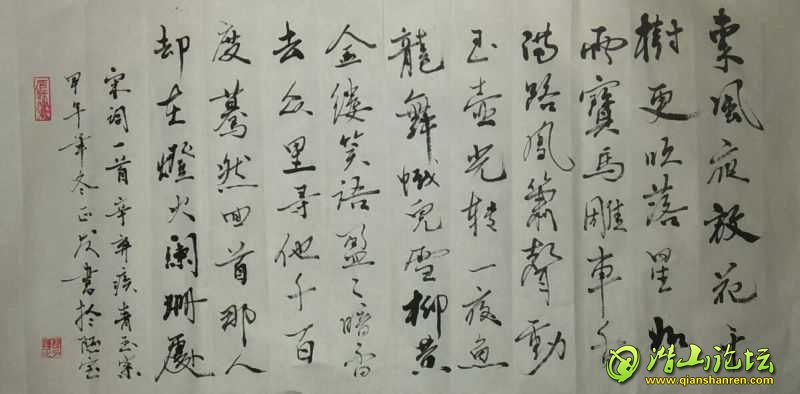 東風夜放花千
樹更吹落星如
雨寶馬雕車香
滿路鳳簫聲動
玉壺光轉一夜魚
龍舞蛾兒雪柳黄
金缕笑語盈々暗香
去众里寻他千百
度驀然回首那人
却在燈火阑珊處
宋词一首辛弃疾青玉案
甲午年冬正書於陋室
潜山论坛
www.qianshanren.com